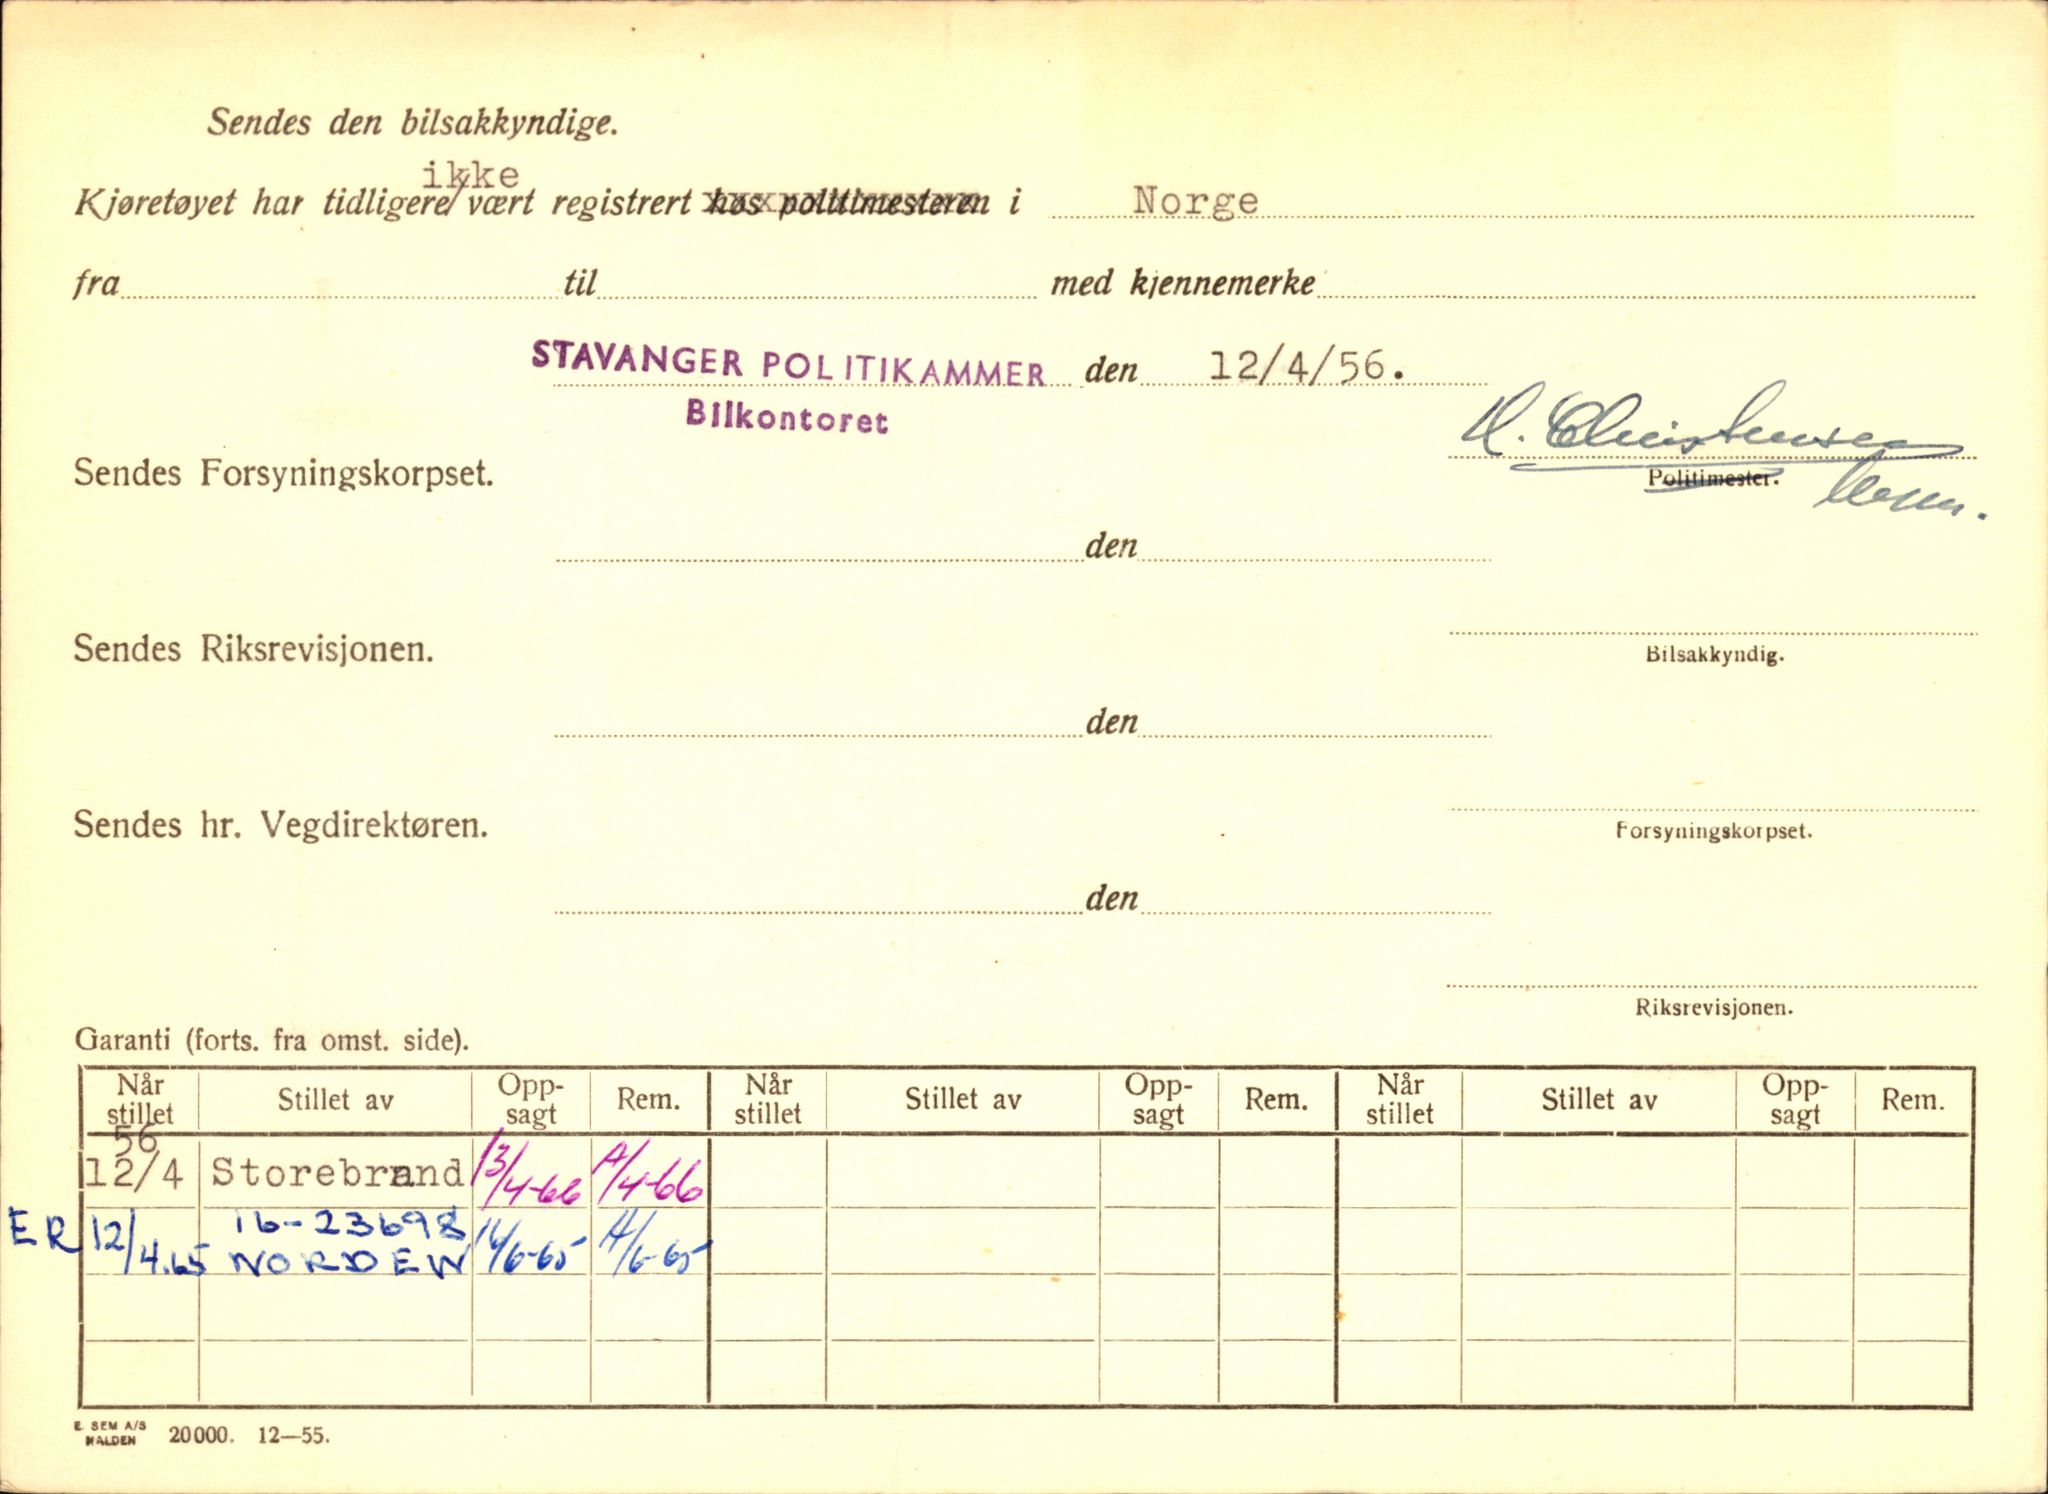 Sendes den bilsakkyndige.
ikke
Kjøretøyet har tidligere/vært registrert hos politimesteren i Norge
fra til med kjennemerke
STAVANGER POLITIKAMMER den 12/4/56.
Bilkontoret
Christensen
Sendes Forsyningskorpset.
Politimester.
den
Sendes Riksrevisjonen.
Bilsakkyndig.
den
Sendes hr. Vegdirektøren.
Forsyningskorpset.
den
Riksrevisjonen.
Garanti (forts. fra omst. side).
Når stillet Stillet av Opp-sagt Rem. Når stillet Stillet av Opp-sagt Rem. Når stillet Stillet av Opp-sagt Rem.
56
12/4 Storebrand 13/4-66 A/4-66
16-23698
ER 12/4.65 NORDEN 14/6-65 A/6-65
E. SEM A/S
HALDEN 20000. 12—55.